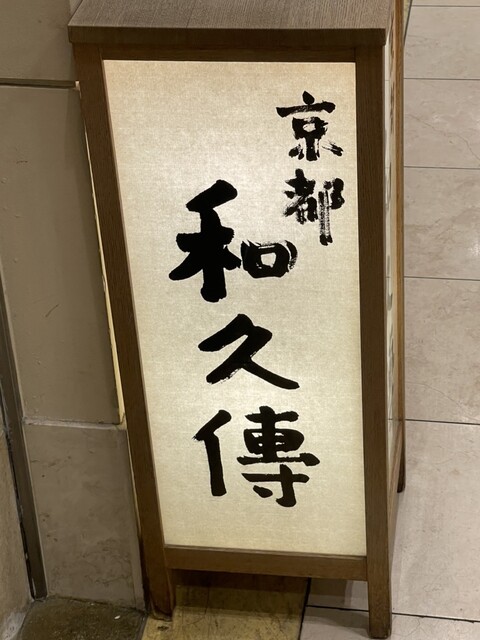 京都
和久傳